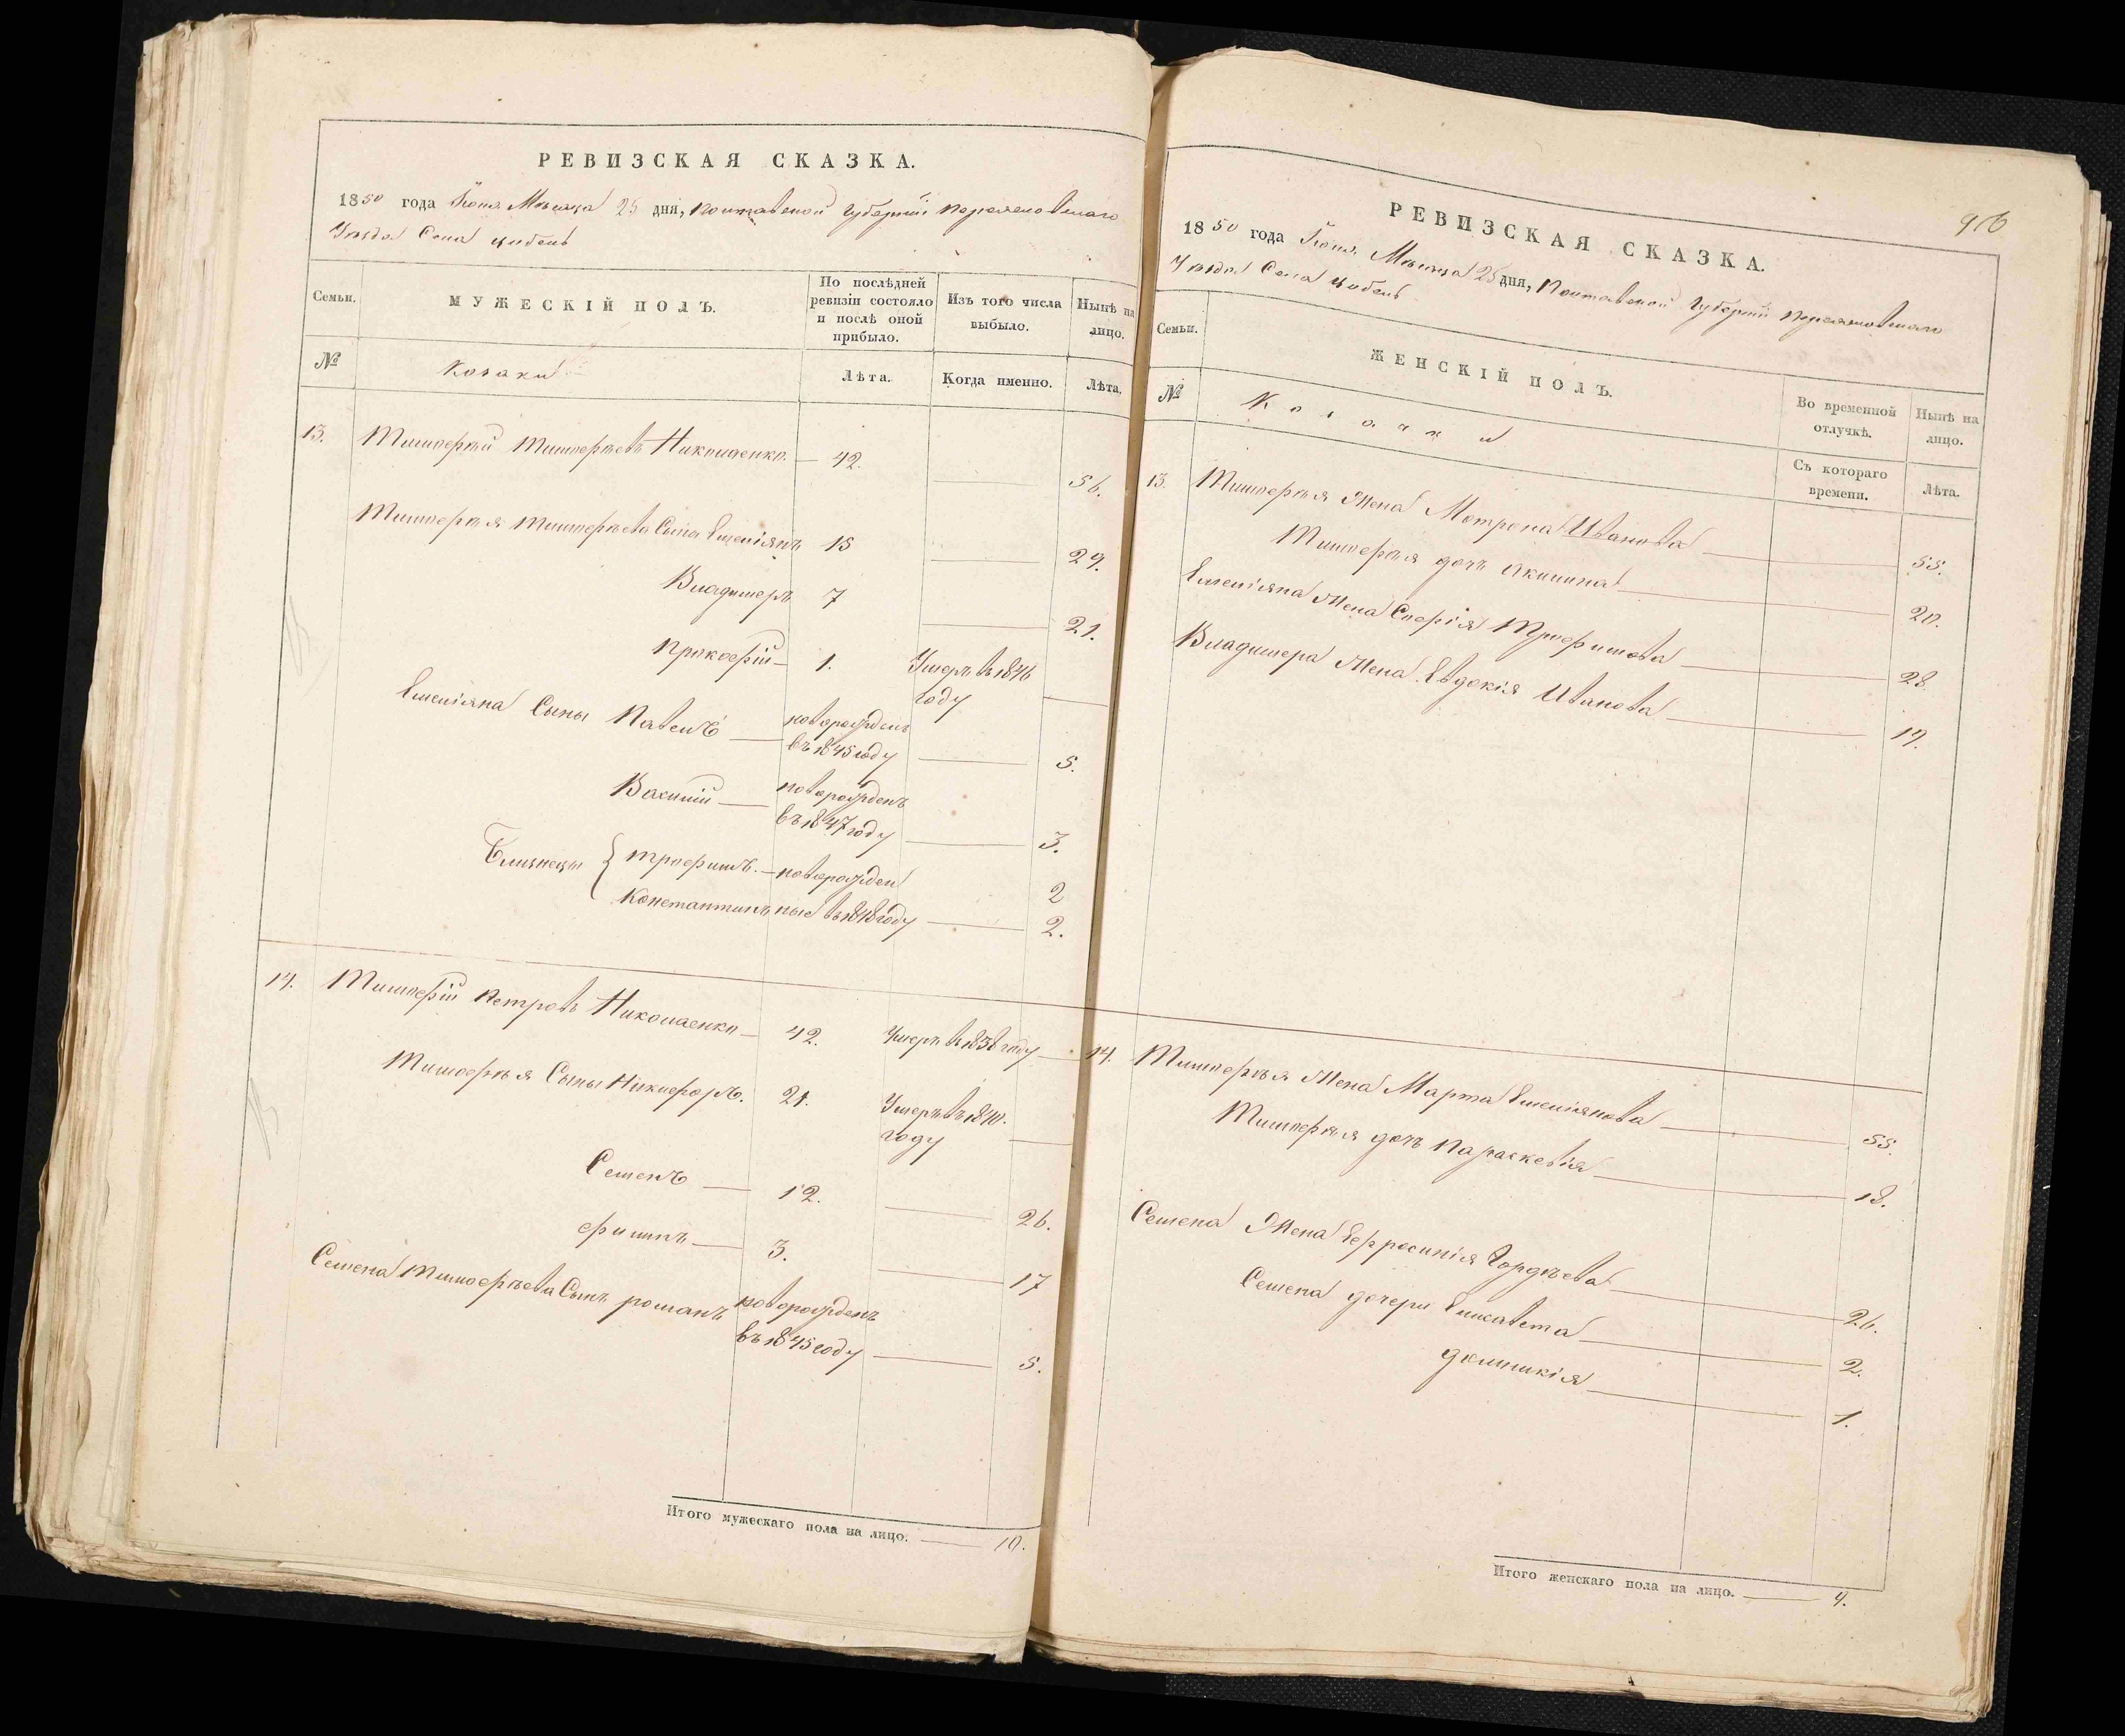 РЕВИЗСКАЯ СКАЗКА.
1850 года Іюня Мѣсяца 25 дня, Полтавской Губерніи Переяславскаго
Уѣзда Села Цибель
Семьи.
МУЖЕСКІЙ ПОЛЪ.
По послѣдней ревизіи состояло и послѣ оной прибыло.
Изъ того числа выбыло.
Нынѣ на лицо.
№
Козаки
Лѣта.
Когда именно.
Лѣта.
13. Тимоѳей Тимоѳеевъ Николаенко — 42. 56.
Тимоѳея Тимоѳеева Сыны Емеліянъ 15 29.
Владимеръ 7 21.
Прокофій — 1. Умеръ въ 1846
году
Емеліяна Сыны Павелъ — новорожденъ
въ 1845 году 5.
Василій — новорожденъ
въ 1847 году 3.
Близнецы { Трофимъ. — новорожден 2
Константинъ ные въ 1848 году 2.
14. Тимофій Петровъ Николаенко — 42. Умеръ въ 1838 году
Тимофея Сыны Никифоръ. 21. Умеръ въ 1840.
году
Семенъ — 12. 26.
Филипъ — 3. 17
Семена Тимофеева Сынъ Романъ новорожденъ
въ 1845 году 5.
Итого мужескаго пола на лицо. — 10.
РЕВИЗСКАЯ СКАЗКА.
1850 года Іюня Мѣсяца 25 дня, Полтавской Губерніи Переяславскаго
Уѣзда Села Цибель
Семьи.
ЖЕНСКІЙ ПОЛЪ.
Во временной отлучкѣ.
Нынѣ на лицо.
№
Козачки
Съ котораго времени.
Лѣта.
13. Тимофея Жена Мотрона Иванова 55.
Тимофея дочь Акилина 20.
Емеліяна Жена Софія Трофимова 28.
Владимера Жена Евдокія Иванова 19.
14. Тимофея Жена Марта Емеліянова 55.
Тимофея дочь Параскевія 18.
Семена Жена Ефросинія Гордѣева 26.
Семена дочери Елисавета 2.
Гликикія 1.
Итого женскаго пола на лицо. — 9.